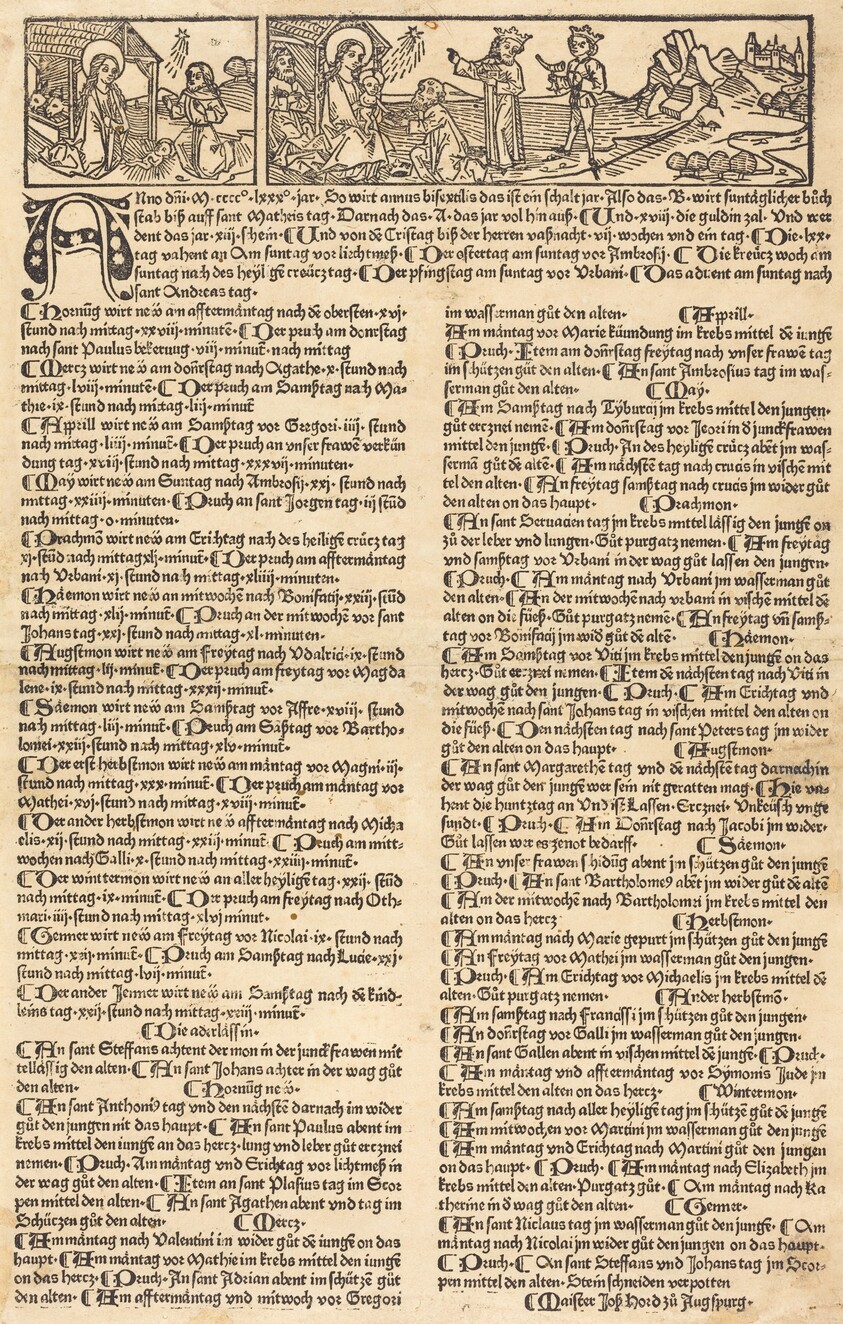 ANno dñi·M·cccc°·lxxx°·jar· So wirt annus bisextilis das ist ein schalt jar·Also das·B·wirt suntäglicher bůch
stab biß auff sant Matheis tag·Darnach das·A·das jar vol hin auß·¶Und·xviii·die guldin zal·Vnd wer
dent das jar·xiij·schein·¶Und von dē Cristag biß der herren vaßnacht·vij·wochen vnd ein tag·¶Die·lxx·
tag vahent an Am suntag vor liechtmeß·¶Der ostertag am suntag vor Ambrosij·¶Die kreücz woch am
suntag nach des heyligē creücz tag·¶Der pfingstag am suntag vor Urbani·¶Das aduent am suntag nach
sant Andreas tag·
¶Hornūg wirt new an afftermāntag nach dē obersten·xvj·
stund nach mittag·xxviij·minutē·¶Der pruch am donrstag
nach sant Paulus bekerung·viij·minut̄·nach mittag
¶Mercz wirt new am doñrstag nach Agathe·x·stund nach
mittag·lviij·minutē·¶Der pruch am Samßtag nach Ma-
thie·ix·stund nach mittag·liij·minut̄
¶Apprill wirt new am Samßtag vor Gregori·iiij·stund
nach mittag·liiij·minut̄·¶Der pruch an vnser frawen verkün
dung tag·xviij·stund nach mittag·xxxvij·minuten·
¶May wirt new am Suntag nach Ambrosij·xxj·stund nach
mittag·xxiiij·minuten·¶Pruch an sant Jorgen tag·iij stūd
nach mittag·o·minuten·
¶Prachmō wirt new am Erichtag nach des heiligē crücz tag
xj·stūd nach mittag xlj·minut̄·¶Der pruch am afftermāntag
nach Vrbani·xj·stund nach mittag·xliiij·minuten·
¶Häemon wirt new an mitwochē nach Bonifatij·xxiij·stūd
nach mittag·xlij·minut̄·¶Pruch an der mitwochē vor sant
Johans tag·xxj·stund nach mittag·xl·minuten·
¶Augstmon wirt new am Freytag nach Vdalrici·ix·stund
nach mittag·lij·minut̄·¶Der pruch am freytag vor Magda
lene·ix·stund nach mittag·xxxij·minut̄·
¶Säemon wirt new am Samßtag vor Affre·xviij·stund
nach mittag·liij·minut̄·¶Pruch am Sāßtag vor Bartho-
lomei·xxiij·stund nach mittag·xlv·minut̄·
¶Der erst herbstmon wirt new am māntag vor Magni·iij·
stund nach mittag·xxx·minut̄·¶Der pruch am māntag vor
Mathei·xvj·stund nach mittag·xviij·minut̄·
¶Der ander herbstmon wirt new afftermāntag nach Micha
elis·xij·stund nach mittag·xxiij·minut̄·¶Pruch am mitt-
wochen nach Galli·x·stund nach mittag·xxiiij·minut̄·
¶Der winttermon wirt new an aller heyligē tag·xxij·stūd
nach mittag·ix·minut̄·¶Der pruch am freytag nach Oth-
mari·iiij·stund nach mittag·xlvj minut·
¶Genner wirt new am Freytag vor Nicolai·ix·stund nach
mittag·xxij·minut̄·¶Pruch am Samßtag nach Lucie·xxj·
stund nach mittag·lvij·minut̄·
¶Der ander Jenner wirt new am Samßtag nach dē kind-
leins tag·xxij·stund nach mittag·xxiij·minut̄·
¶Die aderlässin·
¶An sant Steffans achtent der mon in der junckfrawen mit
tellässig den alten·¶An sant Johans achter in der wag gůt
den alten·¶Hornūg new·
¶An sant Anthonij tag vnd den nächstē darnach im wider
gůt den jungen nit das haupt·¶An sant Paulus abent im
krebs mittel den iungē an das hercz·lung vnd leber gůt ercznei
nemen·¶Pruch·Am māntag vnd Erichtag vor lichtmeß in
der wag gůt den jungen·¶Item an sant Plasius tag im Scor
pen mittel den alten·¶An sant Agathen abent vnd tag im
Schüczen gůt den alten·¶Mercz·
¶Am māntag nach Valentini im wider gůt dē iungē on das
haupt·¶Am māntag vor Mathie im krebs mittel den iungē
on das hercz·¶Pruch·An sant Adrian abent im schützē gůt
den alten·¶Am afftermāntag vnd mitwoch vor Gregori
im wasserman gůt den alten·¶Apprill·
Am māntag vor Marie kündung im krebs mittel dē iungē
¶Pruch·Item am doñrstag freytag nach vnser frawen tag
im schützen gůt den alten·¶An sant Ambrosius tag im was-
serman gůt den alten·¶May·
¶Am Samßtag nach Tyburcij im krebs mittel den jungen·
gůt ercznei nemē·¶Am doñrstag vor Jeori in d̄ junckfrawen
mittel den jungē·¶Pruch·An des heyligē crücz abēt im was-
sermā gůt dē altē·¶Am nächstē tag nach crucis in vischē mit
tel den alten·¶An freytag samßtag nach crucis im wider gůt
den alten on das haupt·¶Prachmon·
¶An sant Seruacien tag im krebs mittellässig den jungē on
zů der leber vnd lungen·Gůt purgatz nemen·¶Am freytag
vnd samßtag vor Urbani in der wag gůt lassen den jungen·
¶Pruch·¶Am māntag nach Vrbani im wasserman gůt
den alten·¶An der mitwochē nach vrbani in vischē mittel dē
alten on die füeß·Gůt purgatz nemē·¶An freytag vñ samß-
tag vor Bonifacij im wid̄ gůt dē alte·¶Häemon·
¶Am Samßtag vor Viti im krebs mittel den jungē on das
hercz·Gůt ercznei nemen·¶Item dē nächsten tag nach Viti in
der wag gůt den jungen·¶Pruch·¶Am Erichtag vnd
mitwochen nach sant Johans tag in vischen mittel den alten on
die füeß·¶Den nächsten tag nach sant Peters tag im wider
gůt den alten on das haupt·¶Augstmon·
¶An sant Margarethē tag vnd dē nächstē tag darnach in
der wag gůt den jungē wer sein nit geratten mag·¶Hie va-
hent die huntztag an Vnd ist Lassen·Ercznei·Vnkeüsch vnge
sundt·¶Pruch·¶Am Doñrstag nach Jacobi im wider·
Gůt lassen wer es zenot bedarff·¶Säemon·
¶An vnser frawen schidūg abent im schützen gůt den jungē
¶Pruch·¶An sant Bartholomeꝰ abēt im wider gůt dē altē
¶Am der mitwochen nach Bartholomei im krebs mittel den
alten on das hercz·¶Herbstmon·
¶Am māntag nach Marie gepurt im schützen gůt den jungē
¶An Freytag vor Mathei im wasserman gůt den jungen·
¶Pruch·¶Am Erichtag vor Michaelis im krebs mittel dē
alten·Gůt purgatz nemen·¶Ander herbstmō·
¶Am samßtag nach Francissi im schützen gůt den jungen·
¶An doñrstag vor Galli im wasserman gůt den jungen·
¶An sant Gallen abent in vischen mittel dē jungē·¶Pruch·
¶Am māntag vnd afftermāntag vor Symonis Jude im
krebs mittel den alten on das hercz·¶Wintermon·
¶Am samßtag nach aller heyligē tag im schützē gůt dē jungē
¶Am mitwochen vor Martini im wasserman gůt den jungē
¶Am māntag vnd Erichtag nach Martini gůt den jungen
on das haupt·¶Pruch·¶Am māntag nach Elizabeth im
krebs mittel den alten·Purgatz gůt·¶Am māntag nach Ka
therine in d̄ wag gůt den alten·¶Genner·
¶An sant Niclaus tag im wasserman gůt den jungē·¶Am
māntag nach Nicolai im wider gůt den jungen on das haupt·
¶Pruch·¶An sant Steffans vnd Johans tag im Scor-
pen mittel den alten·Stein schneiden verpotten
¶Maister Joß Hord zů Augspurg·